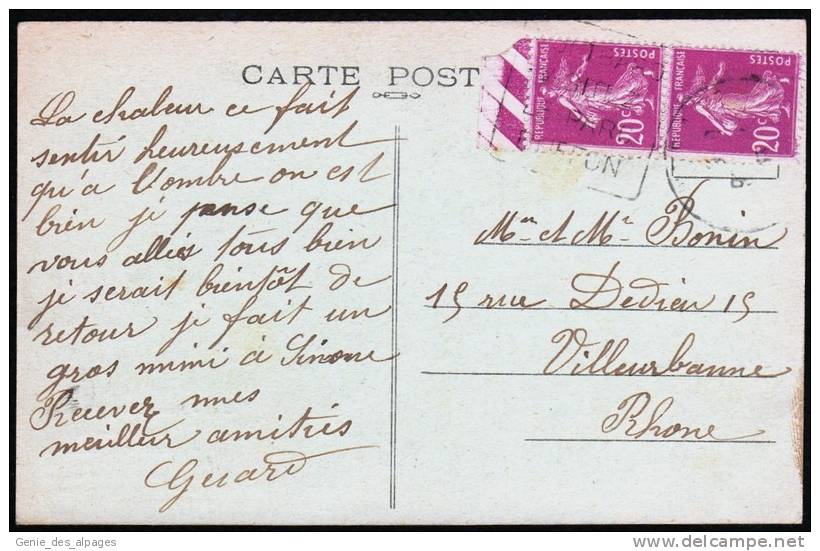 CARTE POST
POSTES
REPUBLIQUE FRANÇAISE
20c
POSTES
REPUBLIQUE FRANÇAISE
20c
PAR
La chaleur ce fait
sentir heureusement
qu'a l'ombre on est
bien je pense que
vous alliés tous bien
je serait bientôt de
retour je fait un
gros mimi à Simone
Recevez mes
meilleur amitiés
Gerard
Mme et Mr Bonin
15 rue Dedieu 15
Villeurbanne
Rhone
Genie_des_alpages
delcampe.net